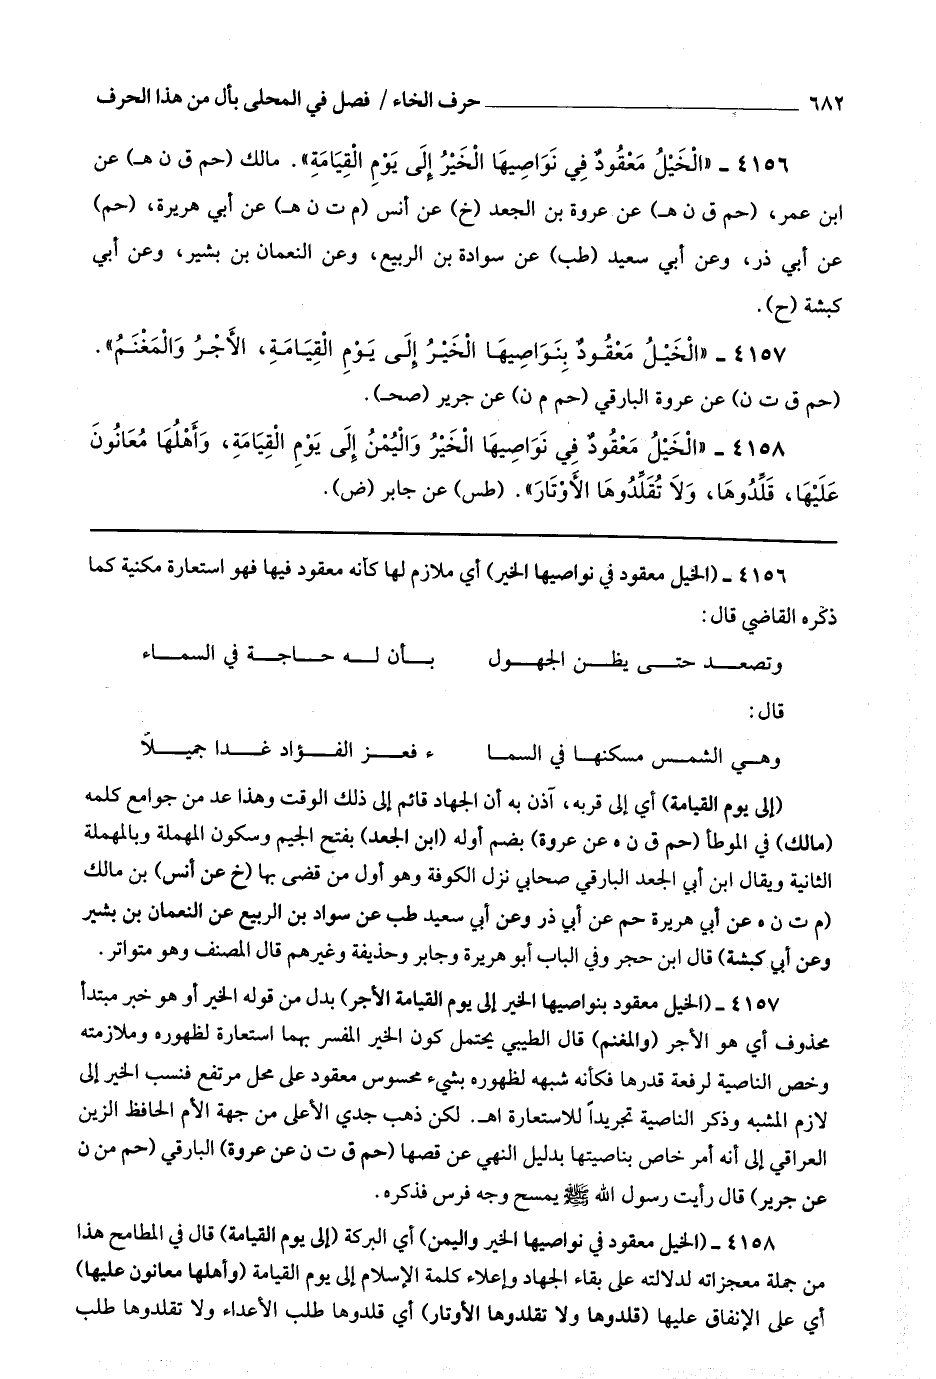 ٦٨٢ ـــــــ حرف الخاء / فصل في المحلى بأل من هذا الحرف
٤١٥٦ ـ «الْخَيْلُ مَعْقُودٌ فِي نَوَاصِيهَا الْخَيْرُ إِلَى يَوْمِ الْقِيَامَةِ». مالك (حم ق ن هـ) عن
ابن عمر، (حم ق ن هـ) عن عروة بن الجعد (خ) عن أنس (م ت ن هـ) عن أبي هريرة، (حم)
عن أبي ذر، وعن أبي سعيد (طب) عن سوادة بن الربيع، وعن النعمان بن بشير، وعن أبي
كبشة (ح).
٤١٥٧ ـ «الْخَيْلُ مَعْقُودٌ بِنَوَاصِيهَا الْخَيْرُ إِلَى يَوْمِ الْقِيَامَةِ، الأَجْرُ وَالْمَغْنَمُ».
(حم ق ت ن) عن عروة البارقي (حم م ن) عن جرير (صحـ).
٤١٥٨ ـ «الْخَيْلُ مَعْقُودٌ فِي نَوَاصِيهَا الْخَيْرُ وَالْيُمْنُ إِلَى يَوْمِ الْقِيَامَةِ، وَأَهْلُهَا مُعَانُونَ
عَلَيْهَا، قَلِّدُوهَا، وَلَا تُقَلِّدُوهَا الأَوْتَارَ». (طس) عن جابر (ض).
٤١٥٦ ـ (الخيل معقود في نواصيها الخير) أي ملازم لها كأنه معقود فيها فهو استعارة مكنية كما
ذكره القاضي قال:
وتصعد حتى يظن الجهول بأن له حاجة في السماء
قال:
وهي الشمس مسكنها في السما ء فعز الفؤاد غدا جميلاً
(إلى يوم القيامة) أي إلى قربه، آذن به أن الجهاد قائم إلى ذلك الوقت وهذا عد من جوامع كلمه
(مالك) في الموطأ (حم ق ن ه عن عروة) بضم أوله (ابن الجعد) بفتح الجيم وسكون المهملة وبالمهملة
الثانية ويقال ابن أبي الجعد البارقي صحابي نزل الكوفة وهو أول من قضى بها (خ عن أنس) بن مالك
(م ت ن ه عن أبي هريرة حم عن أبي ذر وعن أبي سعيد طب عن سواد بن الربيع عن النعمان بن بشير
وعن أبي كبشة) قال ابن حجر وفي الباب أبو هريرة وجابر وحذيفة وغيرهم قال المصنف وهو متواتر.
٤١٥٧ ـ (الخيل معقود بنواصيها الخير إلى يوم القيامة الأجر) بدل من قوله الخير أو هو خبر مبتدأ
محذوف أي هو الأجر (والمغنم) قال الطيبي يحتمل كون الخير المفسر بهما استعارة لظهوره وملازمته
وخص الناصية لرفعة قدرها فكأنه شبهه لظهوره بشيء محسوس معقود على محل مرتفع فنسب الخير إلى
لازم المشبه وذكر الناصية تجريداً للاستعارة اهـ. لكن ذهب جدي الأعلى من جهة الأم الحافظ الزين
العراقي إلى أنه أمر خاص بناصيتها بدليل النهي عن قصها (حم ق ت ن عن عروة) البارقي (حم من ن
عن جرير) قال رأيت رسول الله ﷺ يمسح وجه فرس فذكره.
٤١٥٨ ـ (الخيل معقود في نواصيها الخير واليمن) أي البركة (إلى يوم القيامة) قال في المطامح هذا
من جملة معجزاته لدلالته على بقاء الجهاد وإعلاء كلمة الإسلام إلى يوم القيامة (وأهلها معانون عليها)
أي على الإنفاق عليها (قلدوها ولا تقلدوها الأوتار) أي قلدوها طلب الأعداء ولا تقلدوها طلب